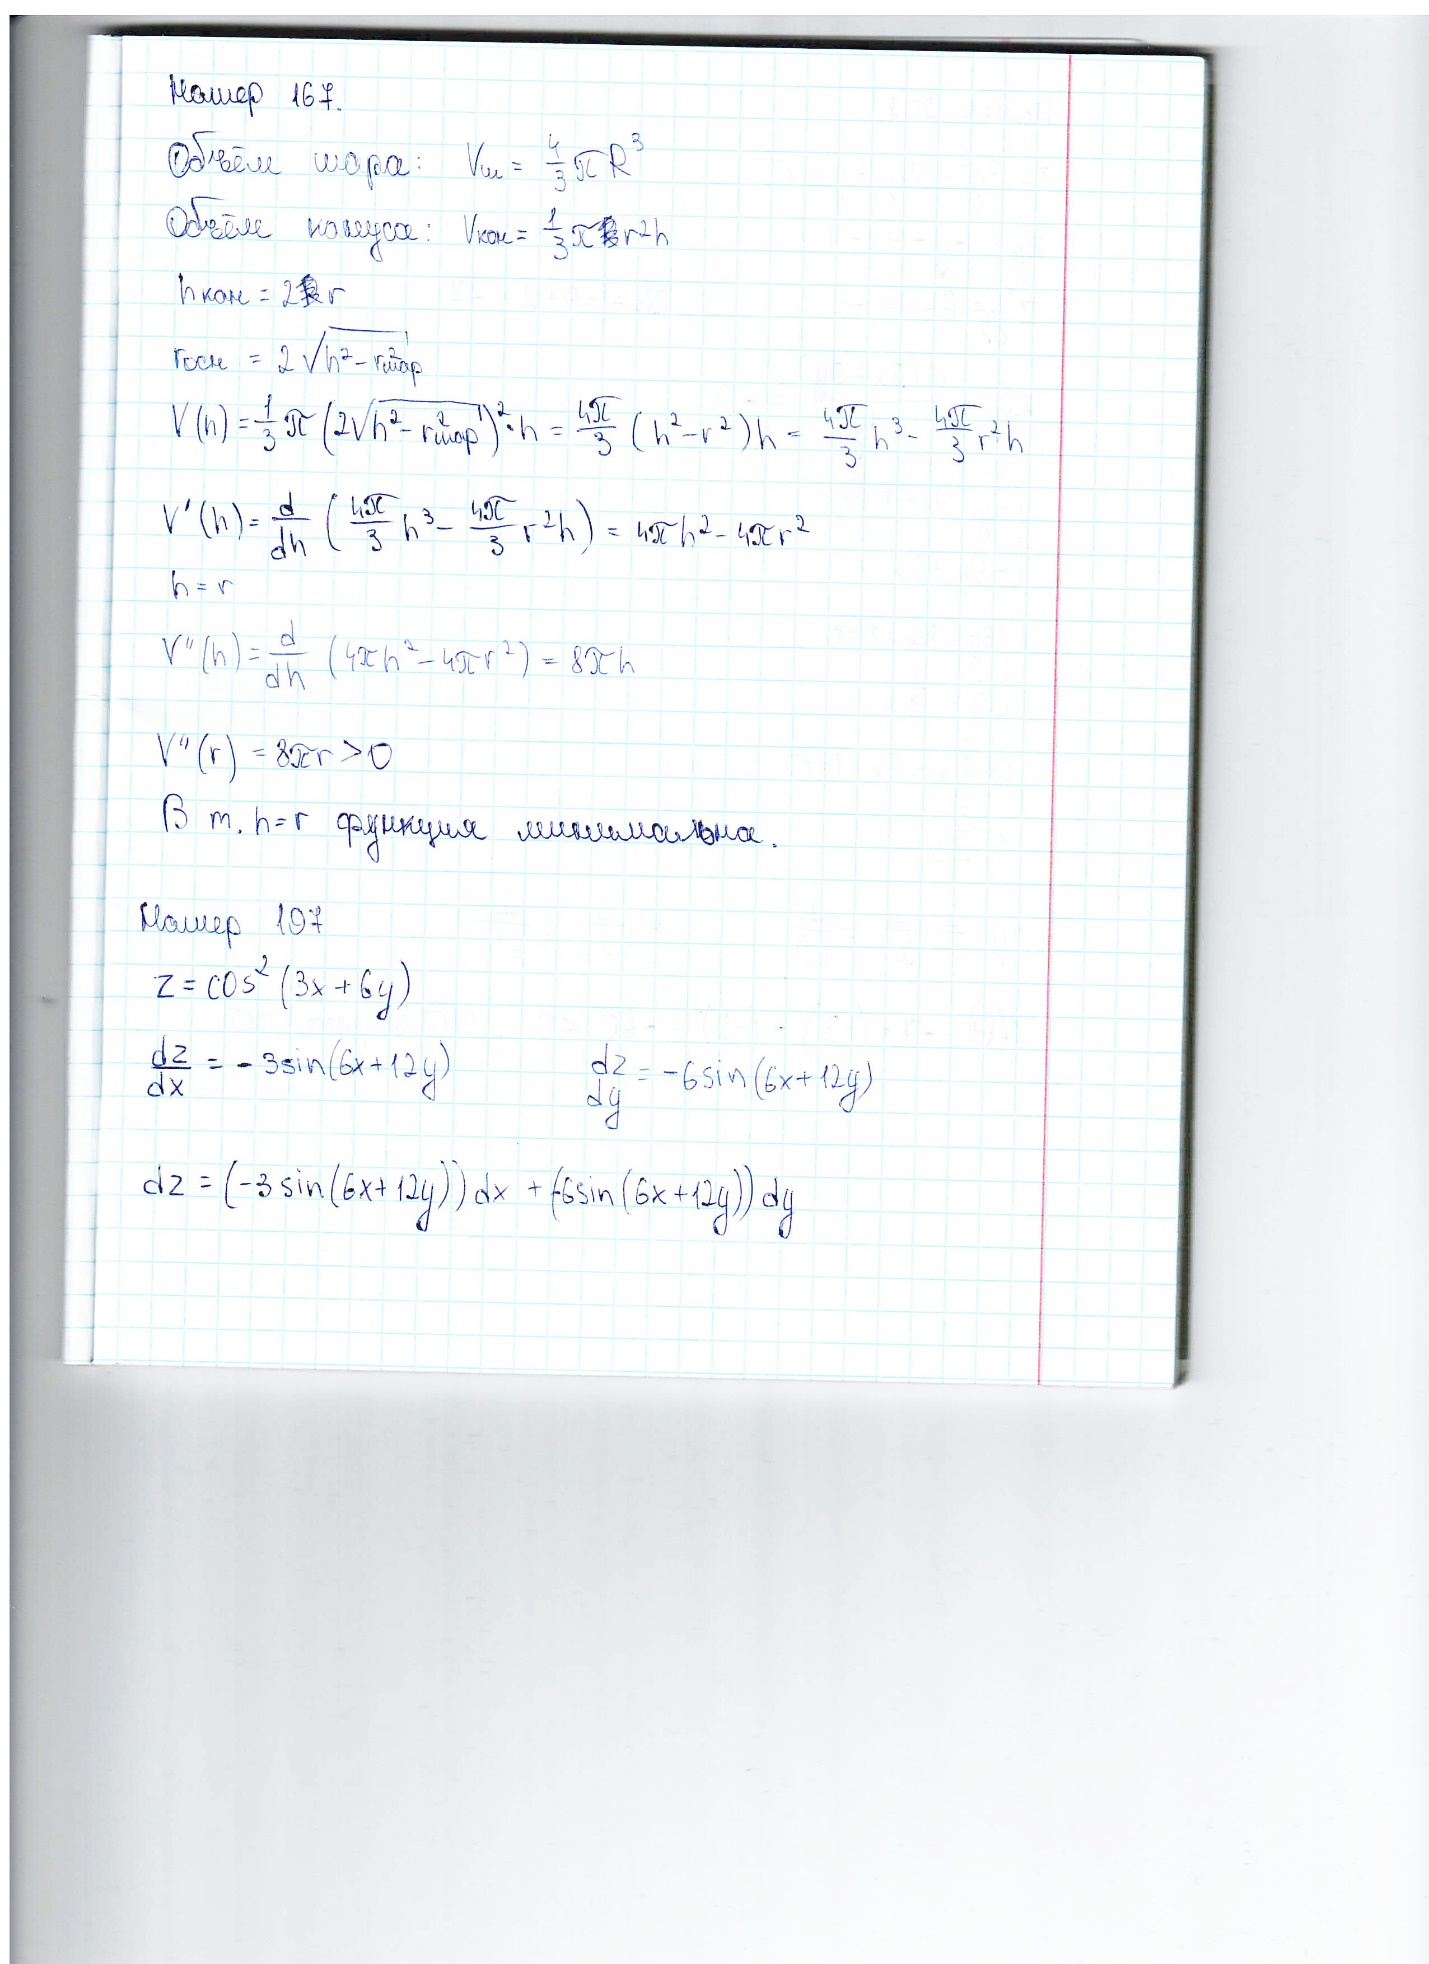 Номер 167.
Объём шара: Vш = 4/3 πR³
Объём конуса: Vкон = 1/3 πr²h
hкон = 2r
rосн = 2√(h² - r²шар)
V(h) = 1/3 π (2√(h² - r²шар))² · h = 4π/3 (h² - r²)h = 4π/3 h³ - 4π/3 r²h
V'(h) = d/dh (4π/3 h³ - 4π/3 r²h) = 4πh² - 4πr²
h = r
V''(h) = d/dh (4πh² - 4πr²) = 8πh
V''(r) = 8πr > 0
В т. h=r функция минимальна.
Номер 197
z = cos² (3x + 6y)
dz/dx = - 3sin(6x+12y) dz/dy = -6sin(6x+12y)
dz = (-3sin(6x+12y))dx + (-6sin(6x+12y))dy